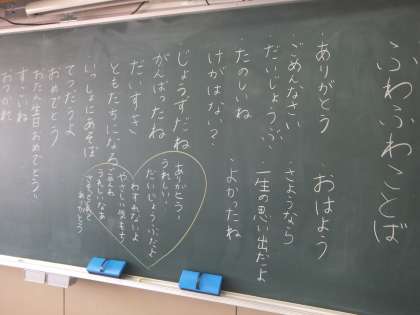 ふわふわことば
・ありがとう
・ごめんなさい
・だいじょうぶ
・たのしいね
けがはない?
・おはよう
・さようなら
・一生の思い出だよ
・よかったね
じょうずだね
がんばったね
だいすき
ともだちになろ
いっしょにあそぼ
てつだうよ
おめでとう
お たん生日おめでとう
すごいね
おつかれ
ありがとう
うれしい!
だいじょうぶだよ
わすれないよ
やさしい気もち
ごめんね
うれしいなあ